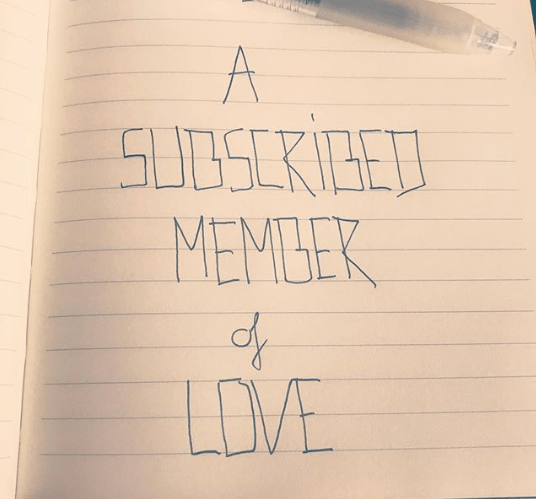 A
SUBSCRiBED
MEMBER
of
LOVE